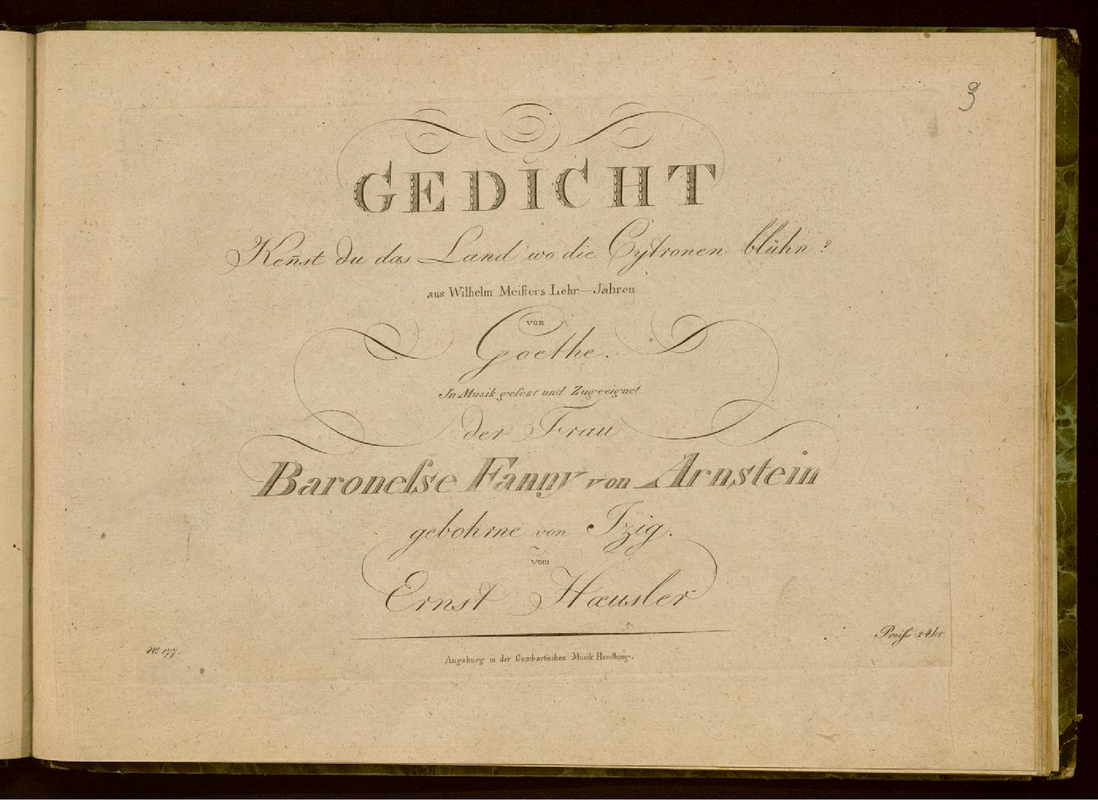 3
GEDICHT
Keñst du das Land wo die Cytronen blühn?
aus Wilhelm Meisters Lehr-Jahren
von
Goethe.
In Musik gesezt und Zugeeignet
der Frau
Baronesse Fanny von Arnstein
gebohrne von Izig.
vom
Ernst Hæusler
Preiſs 24 kr
No. 177.
Augsburg in der Gombartischen Musik Handlung.